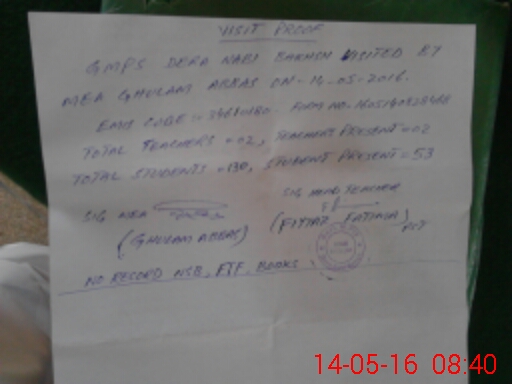 VISIT PROOF
GMPS DERA NABI BAKHSH VISITED BY
MEA GHULAM ABBAS ON- 14-05-2016.
EMIS CODE = FORM NO-
TOTAL TEACHERS = 02, TEACHERS PRESENT = 02
TOTAL STUDENTS = 130, STUDENT PRESENT = 53
SIG MEA
SIG HEAD TEACHER
(GHULAM ABBAS)
NO RECORD NSB, FTF, BOOKS
14-05-16 08:40